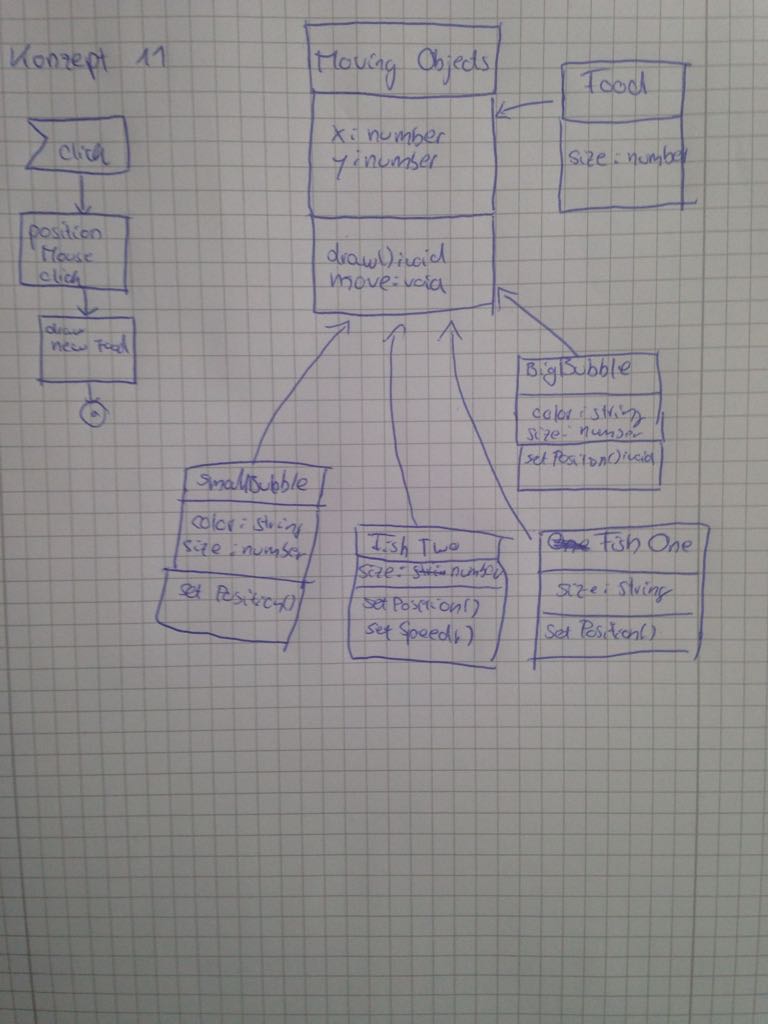 Konzept 11
click
position
Mouse
click
draw
new Food
Moving Objects
x: number
y: number
draw(): void
move: void
Food
size: number
BigBubble
color: string
size: number
set Position(): void
smallBubble
color: string
size: number
set Position()
Fish Two
size: number
set Position()
set Speed()
Fish One
size: string
set Position()